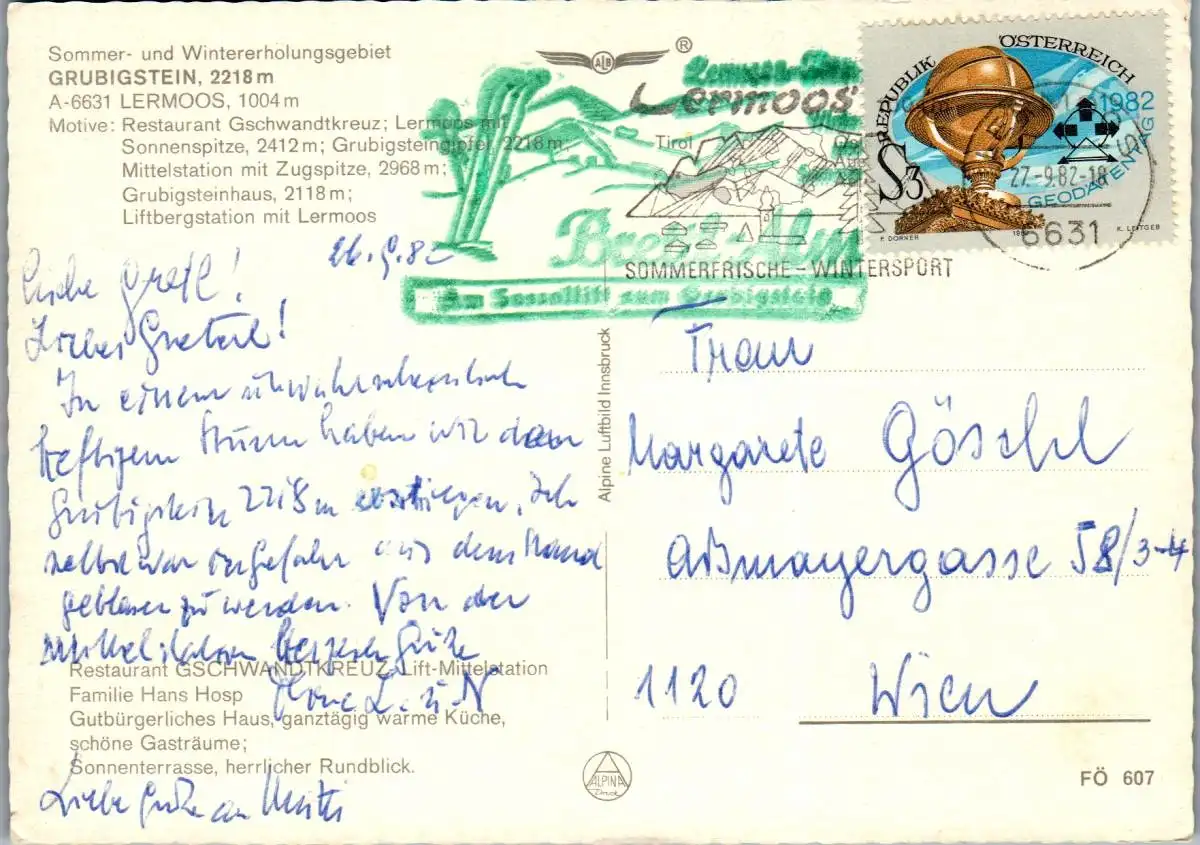 Sommer- und Wintererholungsgebiet
GRUBIGSTEIN, 2218 m
A-6631 LERMOOS, 1004 m
Motive: Restaurant Gschwandtkreuz; Lermoos mit
Sonnenspitze, 2412 m; Grubigsteingipfel, 2218 m;
Mittelstation mit Zugspitze, 2968 m;
Grubigsteinhaus, 2118 m;
Liftbergstation mit Lermoos
ALB
®
Lermoos
Tirol
Am Sessellift zum Grubigstein
SOMMERFRISCHE - WINTERSPORT
REPUBLIK ÖSTERREICH
1982
GEODÄTENTAG
S3
27.-9.82-18
6631
K. LEITGEB
26.9.82
Liebe Gretl!
Liebes Greterl!
In einem unwahrscheinlich
heftigem Sturm haben wir den
Grubigstein 2218 m erstiegen, ich
selbst war in Gefahr aus dem Stand
geblasen zu werden. Von der
Mittelstation Herzen Grüße
L. u. N
Restaurant GSCHWANDTKREUZ, Lift-Mittelstation
Familie Hans Hosp
Gutbürgerliches Haus, ganztägig warme Küche,
schöne Gasträume;
Sonnenterrasse, herrlicher Rundblick.
Liebe Grüße an
Alpine Luftbild Innsbruck
Frau
Margarete Göschl
Aßmayergasse 58/3-4
1120 Wien
ALPINA
Druck
FÖ 607